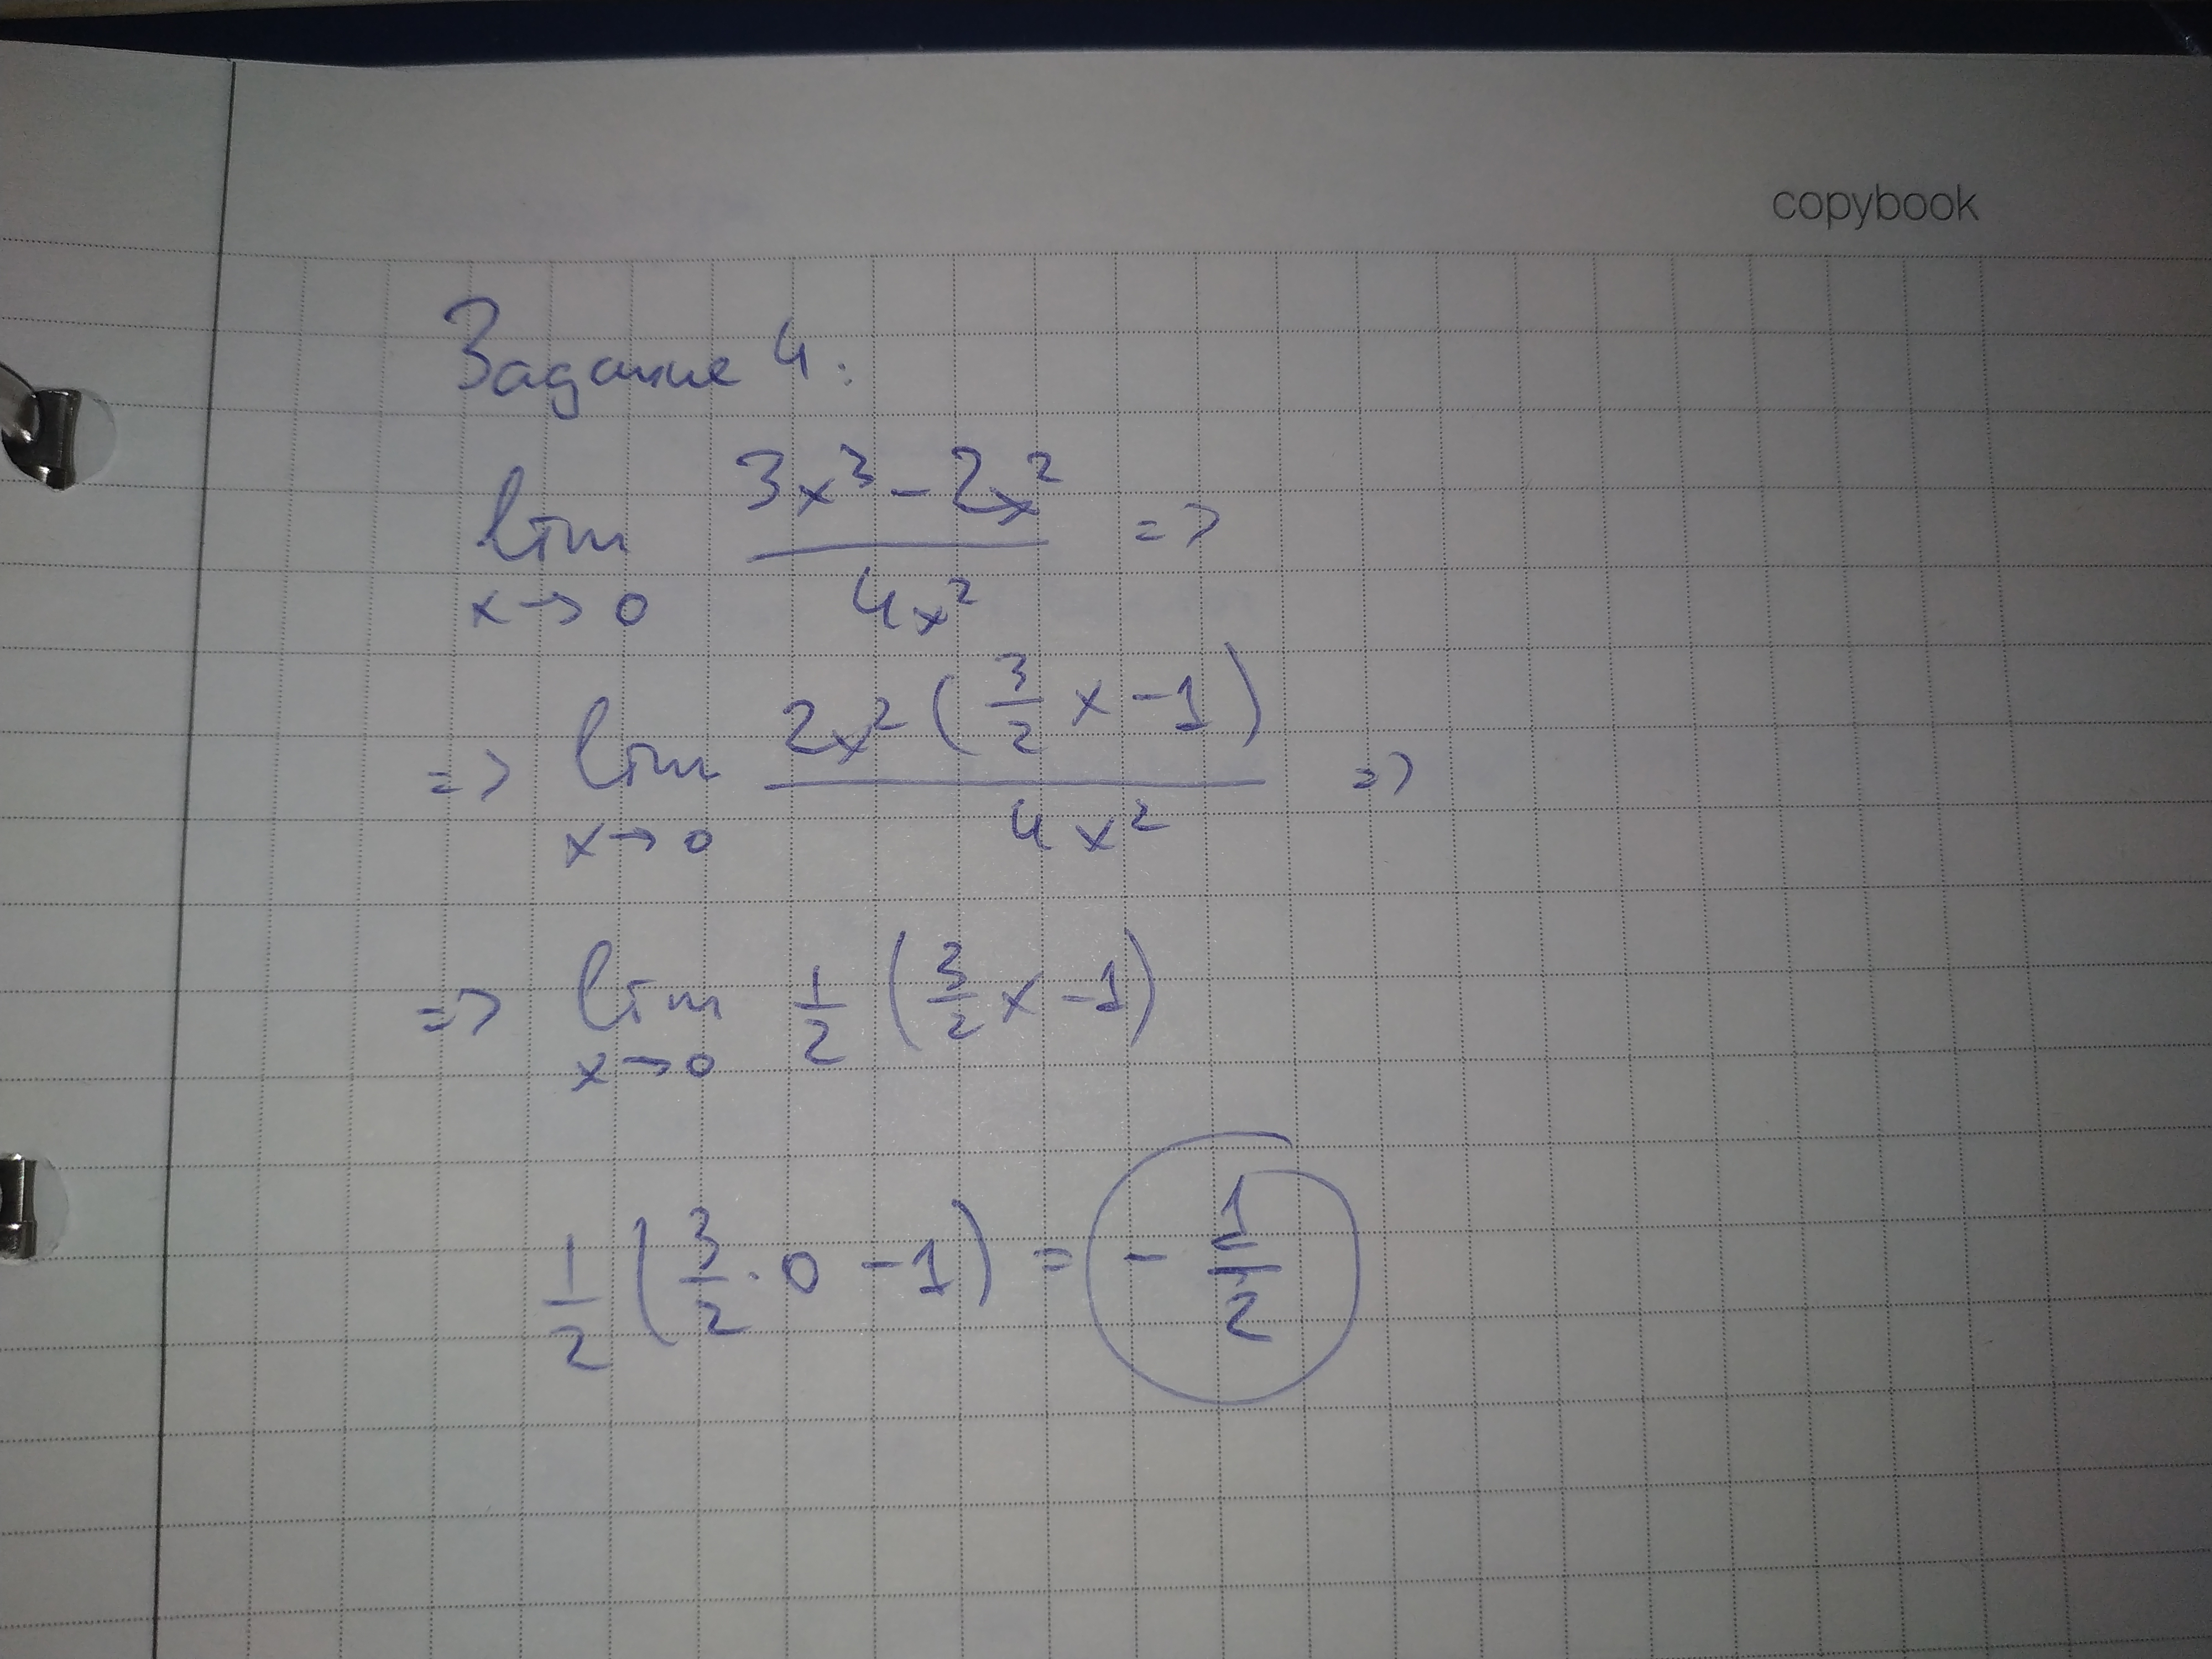 copybook
Задание 4:
lim x→0 (3x³ - 2x²) / 4x² =>
=> lim x→0 2x² (3/2 x - 1) / 4x² =>
=> lim x→0 1/2 (3/2 x - 1)
1/2 (3/2 · 0 - 1) = - 1/2